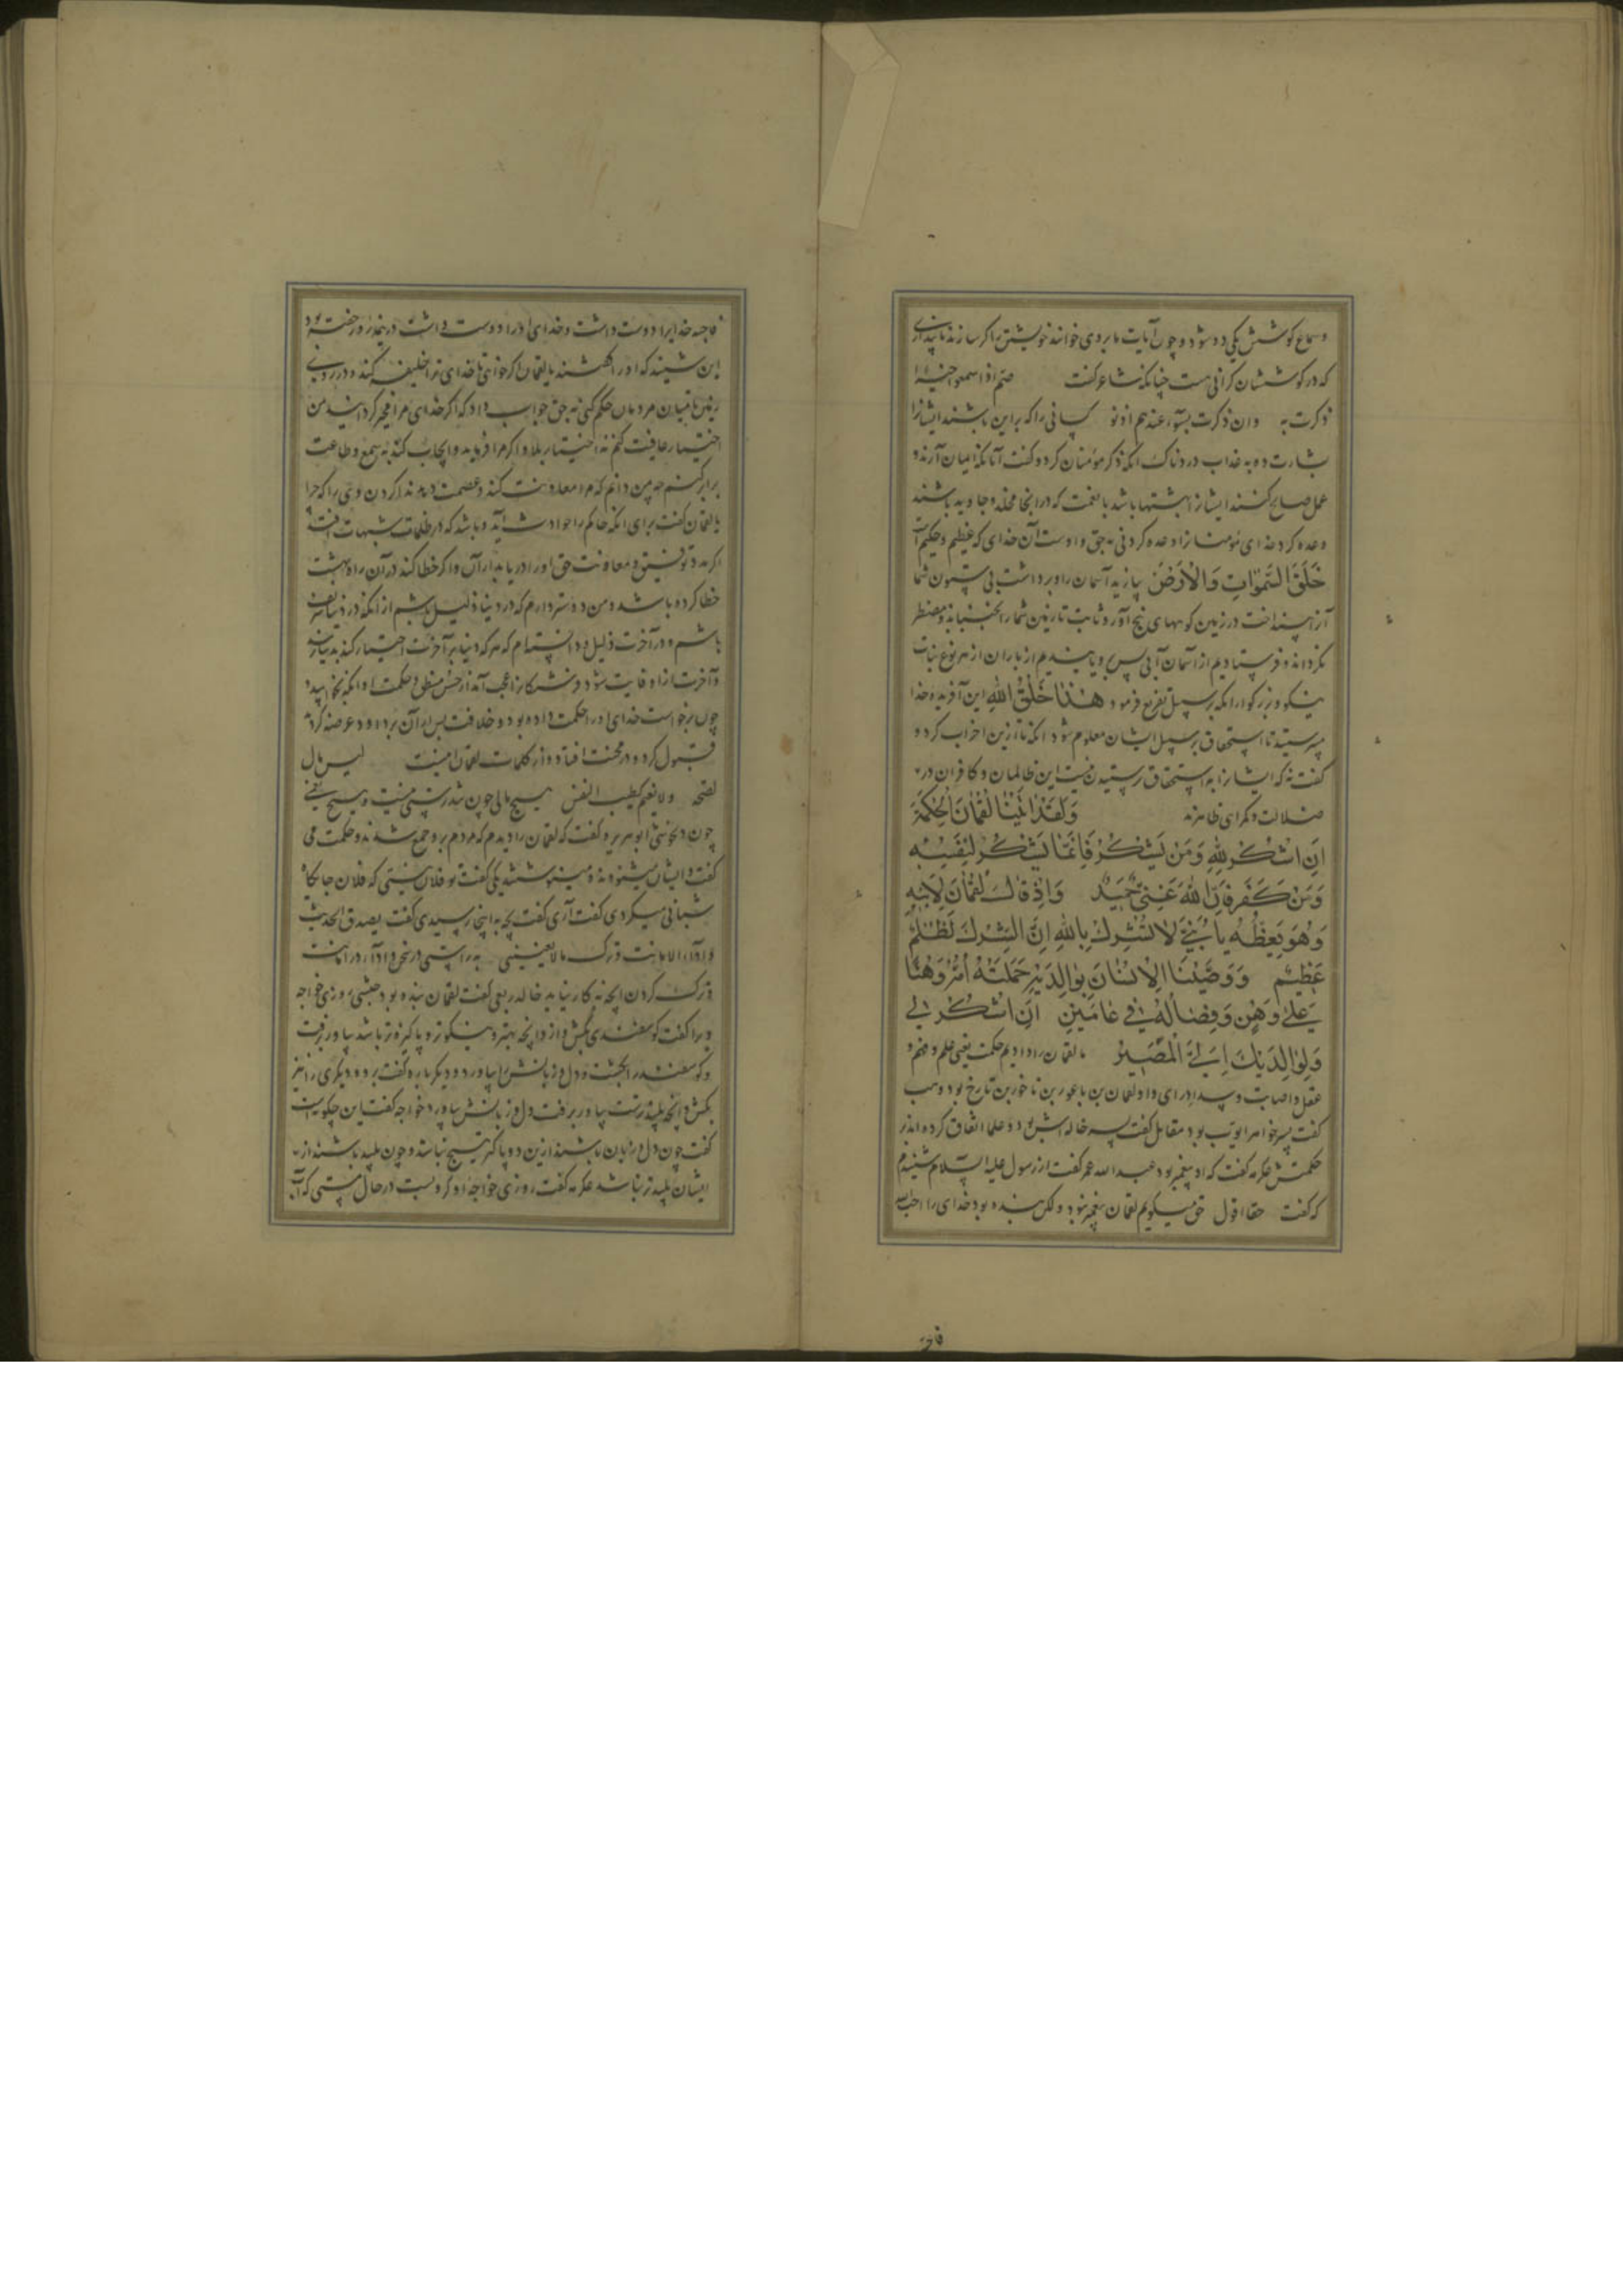 و سماع کوشش یکی دو شود و چون آیات ما بر وی خوانند خویشتن را کر سازند تا پنداری
که در کوششان کرانی هست چنانکه شاعر گفت صم اذا سمعوا خیرا
ذکرت به وان ذکرت بسوء عندهم اذنوا کسانی را که براین باشند ایشانرا
بشارت ده به عذاب دردناک انکه ذکر مؤمنان کرد و کفت آنانکه ایمان آرند و
عمل صالح کنند ایشانرا بهشتها باشد با نعمت که در انجا مخلد و جاوید باشند
وعده کرد خدای مومنانرا وعده کردنی به حق و اوست آن خدای که عظیم و حکیم است
خَلَقَ السَّمٰوٰاتِ وَالْاَرْضَ بیافرید آسمان را و برداشت بی ستون شما
آنرا بینید انداخت در زمین کوههای بیخ آور و ثابت تا زمین شما را نجنباند و مضطر
نکرداند و فرستادیم از آسمان آبی پس برویانیدیم از باران از هر نوع نبات
نیکو و بزرکوار انکه بر سبیل تقریع فرمود هٰذَا خَلْقُ اللّٰهِ این آفریده خدا
میپرستید تا استحقاق بر سبیل ایشان معلوم شود انکه تا ازین اضراب کرد و
کفت نه که ایشانرا به استحقاق پرستیدن نیست این ظالمان و کافران در
ضلالت و کمراهی ظاهرند وَلَقَدْ اٰتَیْنٰا لُقْمٰانَ الْحِکْمَةَ
اَنِ اشْکُرْ لِلّٰهِ وَمَنْ یَشْکُرْ فَاِنَّمٰا یَشْکُرُ لِنَفْسِهِ
وَمَنْ کَفَرَ فَاِنَّ اللّٰهَ غَنِیٌّ حَمِیدٌ وَاِذْ قٰالَ لُقْمٰانُ لِابْنِهِ
وَهُوَ یَعِظُهُ یٰا بُنَیَّ لٰا تُشْرِکْ بِاللّٰهِ اِنَّ الشِّرْکَ لَظُلْمٌ
عَظِیمٌ وَوَصَّیْنَا الْاِنْسٰانَ بِوٰالِدَیْهِ حَمَلَتْهُ اُمُّهُ وَهْنًا
عَلیٰ وَهْنٍ وَفِصٰالُهُ فِی عٰامَیْنِ اَنِ اشْکُرْ لِی
وَلِوٰالِدَیْکَ اِلَیَّ الْمَصِیرُ ما لقمان را دادیم حکمت یعنی علم و فهم و
عقل و اصابت و سداد رای و او لقمان بن باعور بن ناحور بن تارخ بود و وهب
کفت پسر خواهر ایوب بود مقاتل کفت پسر خاله اش بود و علما اتفاق کرده اند بر
حکمتش عکرمه کفت که او پیغمبر بود عبد الله عمر کفت از رسول علیه السلام شنیدم
که کفت حقا اقول حق میکویم لقمان پیغمبر نبود ولکن بنده بود خدای را احب الله
فاحبه
فاحبه خدایرا دوست داشت و خدای او را دوست داشت در نیمه روز خفته بود
این شنید که او را کفتند یا لقمان اکر خواهی تا خدای ترا خلیفه کند در روی
زمین تا میان مردمان حکم کنی به حق جواب داد که اکر خدای مرا مخیر کرداند من
اختیار عافیت کنم نه اختیار بلا و اکر مرا فرماید و ایجاب کند به سمع و طاعت
برابر کنم چه من دانم که مرا معاونت کند و عصمت
یا لقمان کفت برای انکه حاکم را حوادث آید و باشد که در ظلمات شبهات افتد
اکر مدد توفیق و معاونت حق او را دریابد از آن و اکر خطا کند در آن راه بهشت
خطا کرده باشد و من دوستر دارم که در دنیا ذلیل باشم از انکه در دنیا شریف
باشم و در آخرت ذلیل و دانسته ام که هر که دنیا بر آخرت اختیار کند به دنیا نرسد
و آخرت ازو فایت شود فرشتکانرا عجب آمد از حسن منطق و حکمت او انکه بخوابید
چون برخواست خدای او را حکمت داده بود و خلافت پس از آن بر داود عرضه کرد
قبول کرد و در محنت افتاد و از کلمات لقمان اینست لیس مال
کصحة ولا نعیم کطیب النفس هیچ مالی چون تندرستی نیست و هیچ نعیمی
چون دلخوشی ابو هریره کفت که لقمان را دیدم که مردم بر او جمع شدند و حکمت می
کفت و ایشان میشنودند و مینوشتند یکی کفت تو فلان نیستی که فلان جایکاه
شبانی میکردی کفت آری کفت بچه به اینجا رسیدی کفت بصدق الحدیث
و اداء الامانت و ترک ما لا یعنینی به راستی در سخن و اداء در امانت
و ترک کردن انچه نه کار نیاید خالد ربعی کفت لقمان بنده بود حبشی روزی خواجه
ویرا کفت کوسفندی بکش و از و انچه بهتر و نیکوتر و پاکیزه تر باشد بیاور برفت
و کوسفند را بکشت و دل و زبانش بیاورد و دیکر باره کفت برو و دیکری را نیز
بکش و انچه پلیدترست بیاور برفت دل و زبانش بیاورد خواجه کفت این چکونه است
کفت چون دل و زبان باشند ازین دو پاکتر هیچ نباشد و چون پلید باشند از
ایشان پلیدتر نباشد عکرمه کفت روزی خواجه او کرو بست در حال مستی که آب